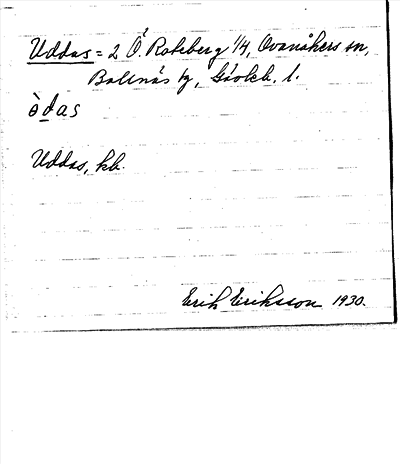 Uddas = 2 Ö. Roteberg 1/4, Ovanåkers sn,
Bollnäs tg, Gävleb. l.
òdas
Uddas, kb.
Erik Eriksson 1930.